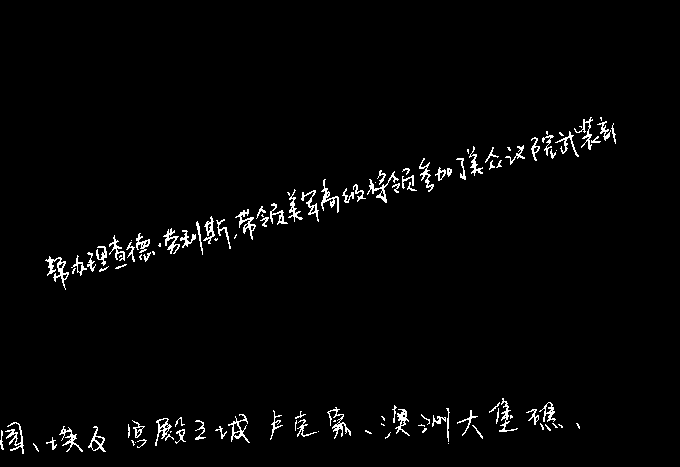 帮办理查德·劳利斯,带领美军高级将领参加了美众议院武装部
国、埃及宫殿之城卢克索、澳洲大堡礁、